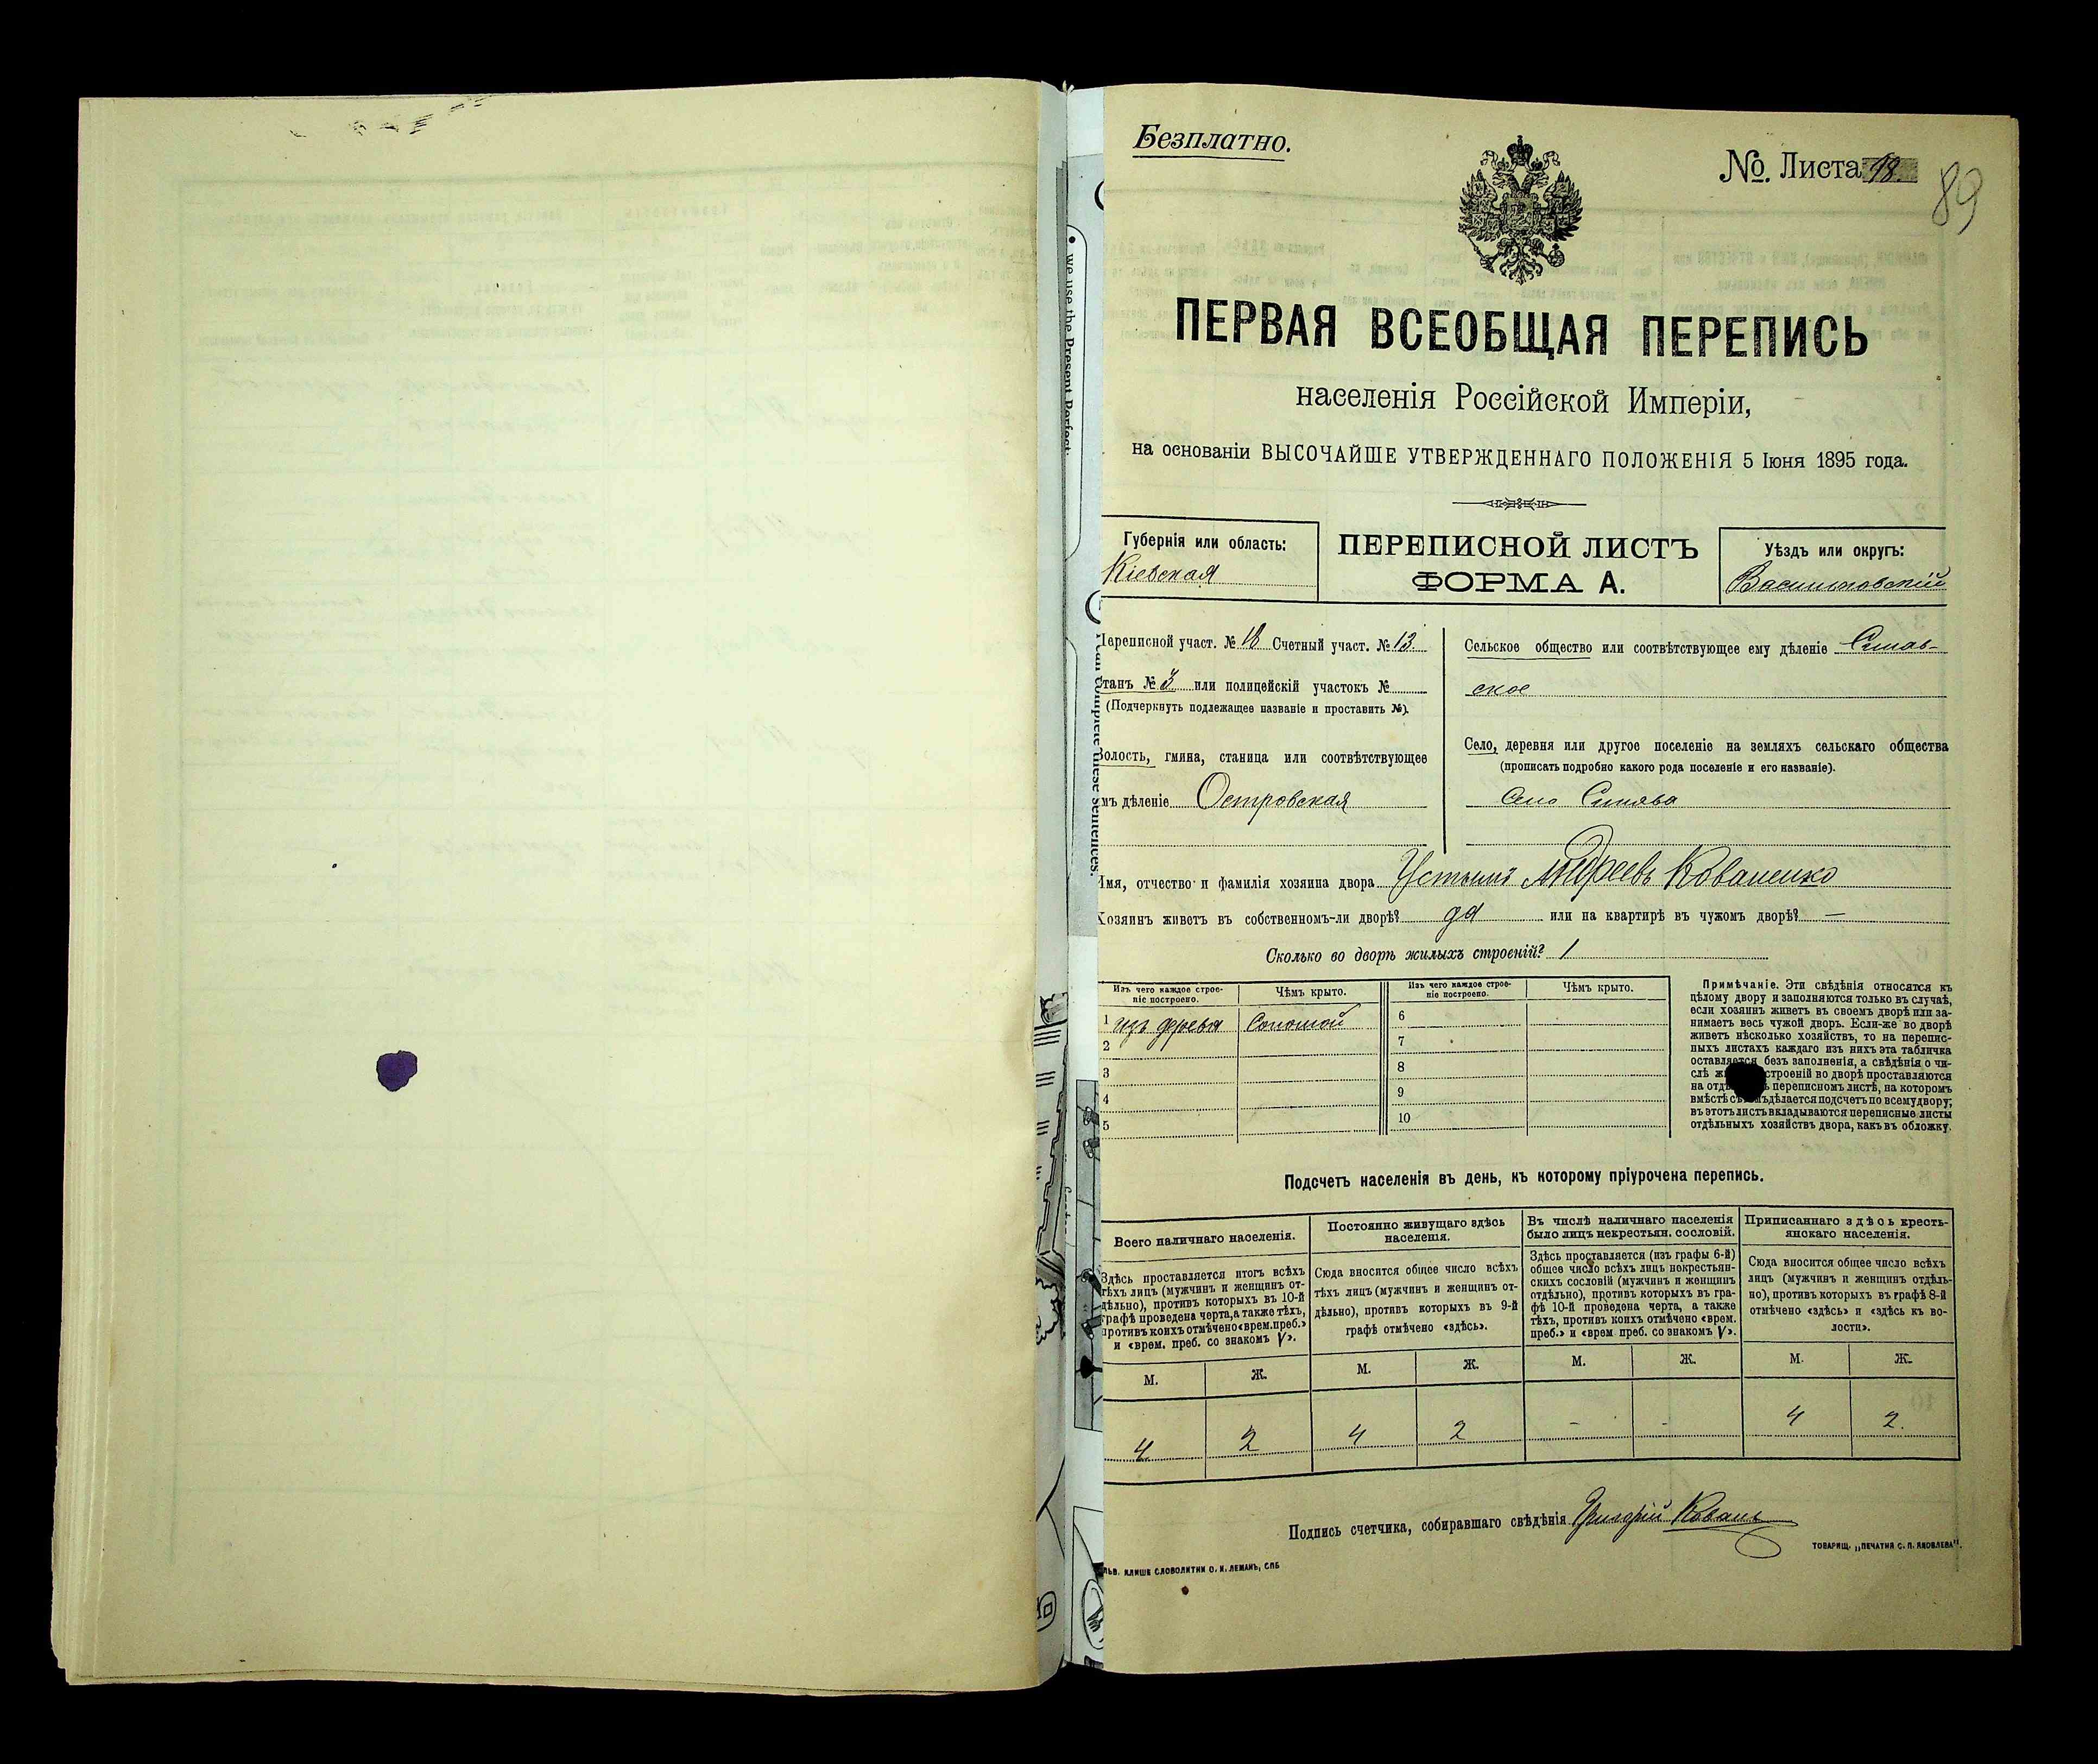 Безплатно.
№. Листа 98.
89
ПЕРВАЯ ВСЕОБЩАЯ ПЕРЕПИСЬ
населенія Россійской Имперіи,
на основаніи ВЫСОЧАЙШЕ УТВЕРЖДЕННАГО ПОЛОЖЕНІЯ 5 Іюня 1895 года.
Губернія или область:
Кіевская
ПЕРЕПИСНОЙ ЛИСТЪ
ФОРМА А.
Уѣздъ или округъ:
Васильковскій
Переписной участ. № 18 Счетный участ. № 13
Станъ № 3 или полицейскій участокъ №
(Подчеркнуть подлежащее названіе и проставить №).
Волость, гмина, станица или соотвѣтствующее
имъ дѣленіе Островская
Сельское общество или соотвѣтствующее ему дѣленіе Синяв-
ское
Село, деревня или другое поселеніе на земляхъ сельскаго общества
(прописать подробно какого рода поселеніе и его названіе).
Село Синява
Имя, отчество и фамилія хозяина двора Устинъ Андреевъ Коваленко
Хозяинъ живетъ въ собственномъ-ли дворѣ? да или на квартирѣ въ чужомъ дворѣ? —
Сколько во дворѣ жилыхъ строеній? 1
Изъ чего каждое строе-
ніе построено.
Чѣмъ крыто.
Изъ чего каждое строе-
ніе построено.
Чѣмъ крыто.
1 изъ дерева Соломой
2
3
4
5
6
7
8
9
10
Примѣчаніе. Эти свѣдѣнія относятся къ
цѣлому двору и заполняются только въ случаѣ,
если хозяинъ живетъ въ своемъ дворѣ или за-
нимаетъ весь чужой дворъ. Если-же во дворѣ
живетъ нѣсколько хозяйствъ, то на перепис-
ныхъ листахъ каждаго изъ нихъ эта табличка
оставляется безъ заполненія, а свѣдѣнія о чи-
слѣ строеній во дворѣ проставляются
на переписномъ листѣ, на которомъ
вмѣстѣ дѣлается подсчетъ по всему двору;
въ этотъ листъ вкладываются переписные листы
отдѣльныхъ хозяйствъ двора, какъ въ обложку.
Подсчетъ населенія въ день, къ которому пріурочена перепись.
Всего наличнаго населенія.
Здѣсь проставляется итогъ всѣхъ
тѣхъ лицъ (мужчинъ и женщинъ от-
дѣльно), противъ которыхъ въ 10-й
графѣ проведена черта, а также тѣхъ,
противъ коихъ отмѣчено «врем. преб.»
и «врем. преб. со знакомъ V».
М. Ж.
4 2
Постоянно живущаго здѣсь
населенія.
Сюда вносится общее число всѣхъ
тѣхъ лицъ (мужчинъ и женщинъ от-
дѣльно), противъ которыхъ въ 9-й
графѣ отмѣчено «здѣсь».
М. Ж.
4 2
Въ числѣ наличнаго населенія
было лицъ некрестьян. сословій.
Здѣсь проставляется (изъ графы 6-й)
общее число всѣхъ лицъ некрестьян-
скихъ сословій (мужчинъ и женщинъ
отдѣльно), противъ которыхъ въ гра-
фѣ 10-й проведена черта, а также
тѣхъ, противъ коихъ отмѣчено «врем.
преб.» и «врем преб. со знакомъ V».
М. Ж.
- -
Приписаннаго здѣсь кресть-
янскаго населенія.
Сюда вносится общее число всѣхъ
лицъ (мужчинъ и женщинъ отдѣль-
но), противъ которыхъ въ графѣ 8-й
отмѣчено «здѣсь» и «здѣсь къ во-
лости».
М. Ж.
4 2.
Подпись счетчика, собиравшаго свѣдѣнія Григорій Коваль
КЛИШЕ СЛОВОЛИТНИ О. И. ЛЕМАНЪ, СПБ
ТОВАРИЩ. „ПЕЧАТНЯ С. П. ЯКОВЛЕВА".
we use the Present Perfect:
complete these sentences.